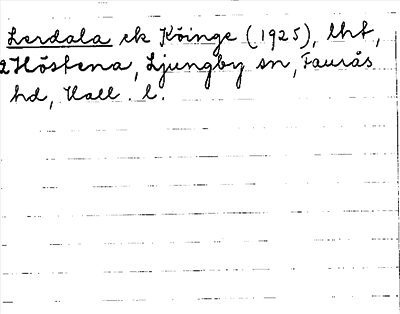 Lerdala ek Köinge (1925), lht,
2 Höstena, Ljungby sn, Faurås
hd, Hall. l.